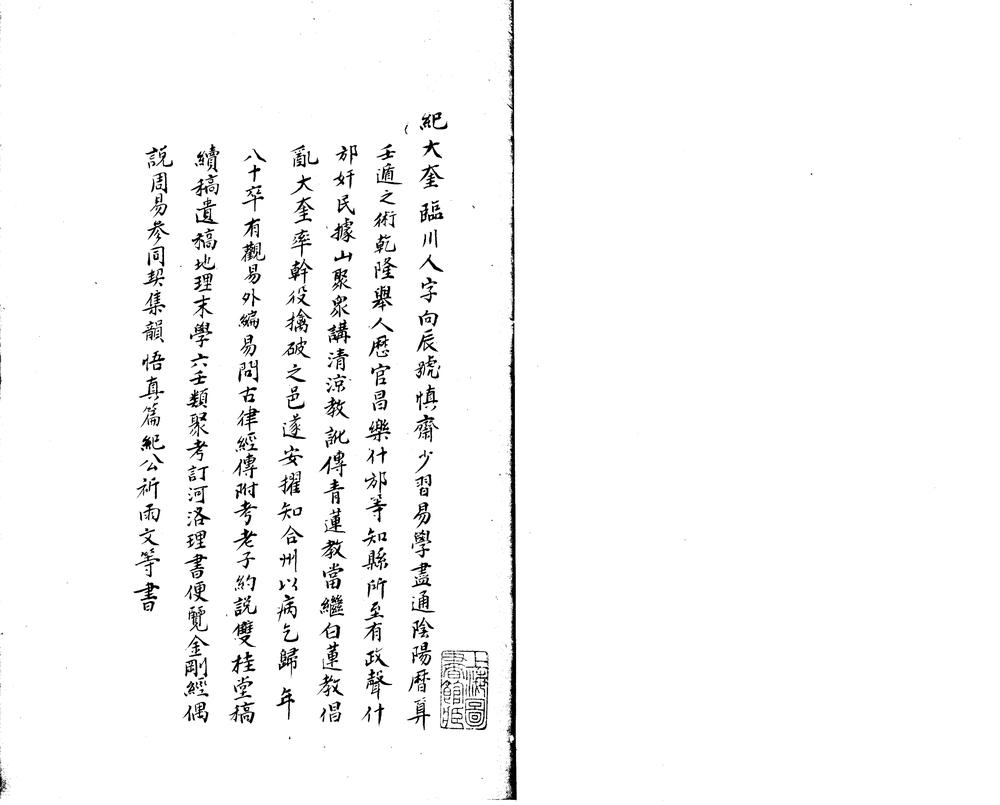 紀大奎臨川人字向辰號慎齋少習易學盡通陰陽曆算
壬遁之術乾隆舉人歷官昌樂什邡等知縣所至有政聲什
邡奸民據山聚衆講清涼教訛傳青蓮教當繼白蓮教倡
亂大奎率幹役擒破之邑遂安擢知合州以病乞歸年
八十卒有觀易外編易問古律經傳附考老子約說雙桂堂稿
續稿遺稿地理末學六壬類聚考訂河洛理書便覽金剛經偶
說周易參同契集韻悟真篇紀公祈雨文等書
上海圖書館藏